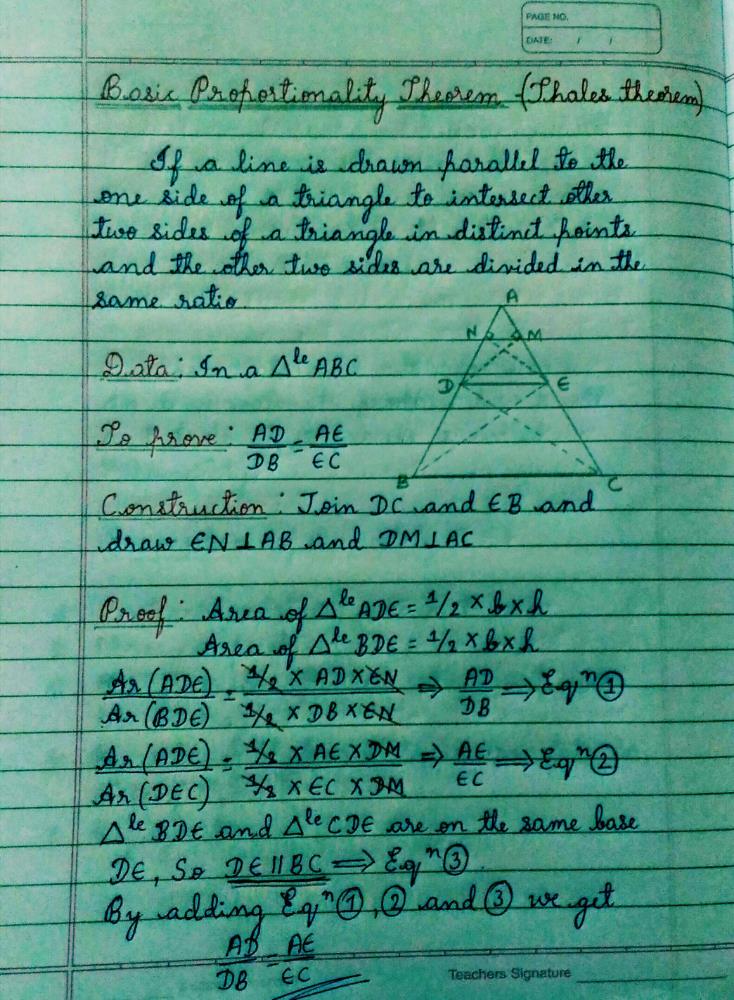 PAGE NO.
DATE: / /
Basic Proportionality Theorem (Thales theorem)
If a line is drawn parallel to the
one side of a triangle to intersect other
two sides of a triangle in distinct points
and the other two sides are divided in the
same ratio.
A
N M
D E
B C
Data: In a Δle ABC
To prove: AD/DB = AE/EC
Construction: Join DC and EB and
draw EN⊥AB and DM⊥AC
Proof: Area of Δle ADE = 1/2 × b × h
Area of Δle BDE = 1/2 × b × h
Ar(ADE)/Ar(BDE) = (1/2 × AD × EN)/(1/2 × DB × EN) ⇒ AD/DB ⇒ Eqn ①
Ar(ADE)/Ar(DEC) = (1/2 × AE × DM)/(1/2 × EC × DM) ⇒ AE/EC ⇒ Eqn ②
Δle BDE and Δle CDE are on the same base
DE, So DE || BC ⇒ Eqn ③.
By adding Eqn ①, ② and ③ we get
AD/DB = AE/EC
Teachers Signature